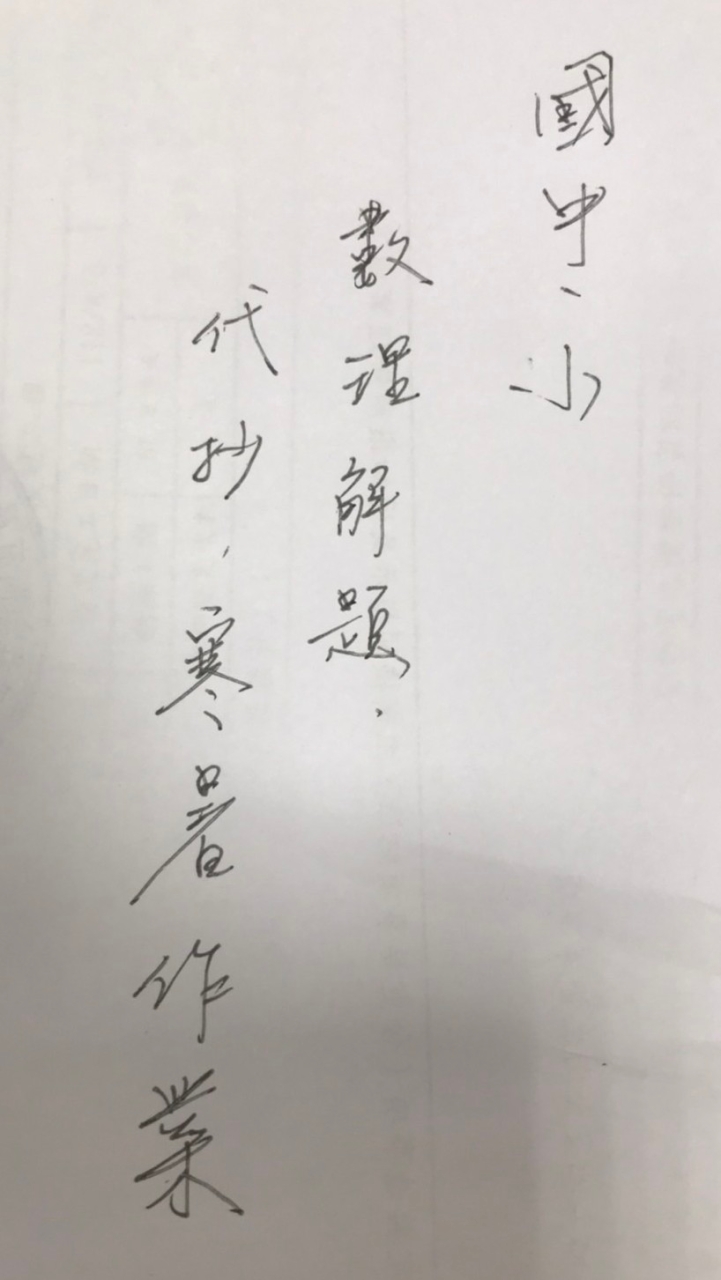 國中、小
數理解題、
代抄,寒暑作業